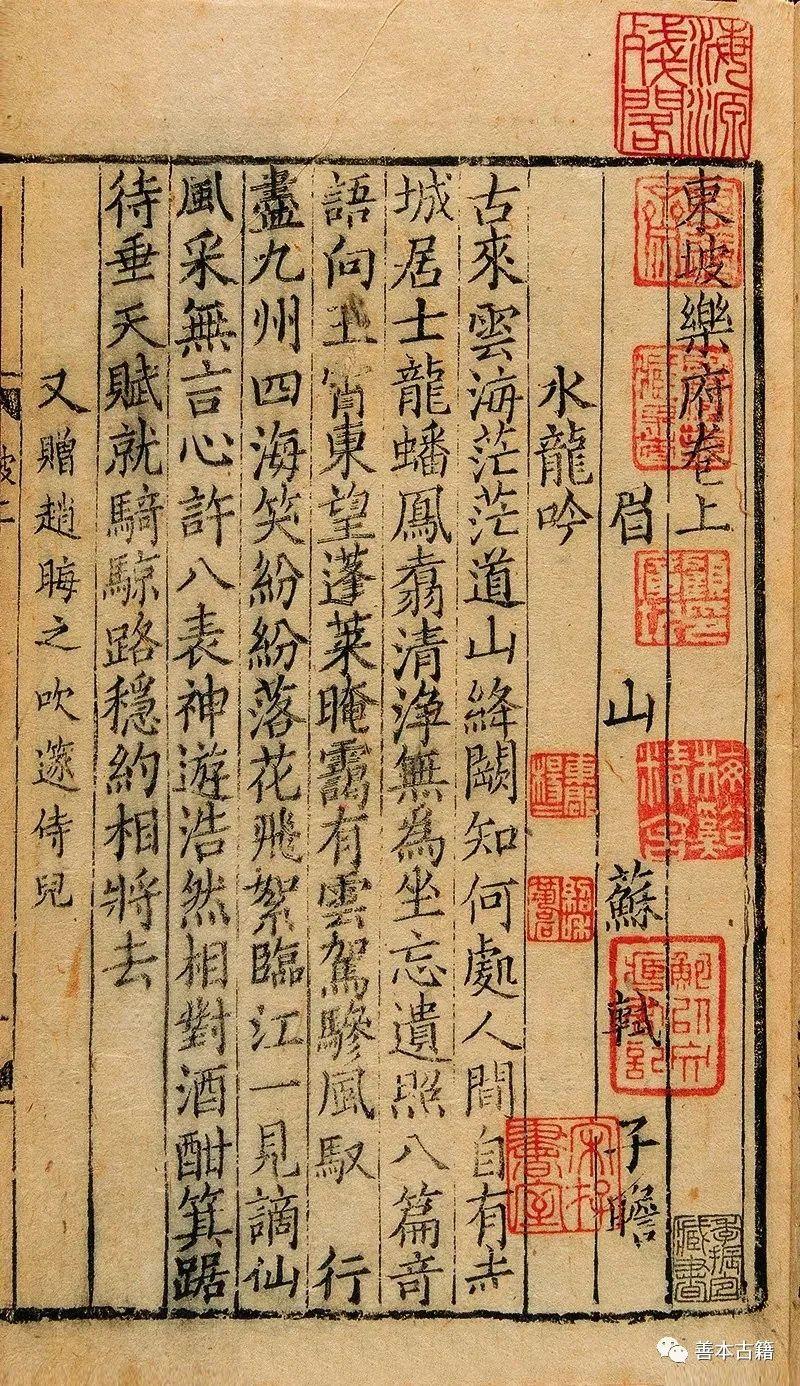 東坡樂府卷上
眉山蘇軾子瞻
水龍吟
古來雲海茫茫道山絳闕知何處人間自有赤
城居士龍蟠鳳翥清淨無為坐忘遺照八篇奇
語向玉宵東望蓬萊晻靄有雲駕驂風馭行
盡九州四海笑紛紛落花飛絮臨江一見謫仙
風采無言心許八表神遊浩然相對酒酣箕踞
待垂天賦就騎鯨路穩約相將去
又贈趙晦之吹邃侍兒
海源殘閣
楊氏
顧
梅谿精舍
東郡楊
宋存書室
善本古籍